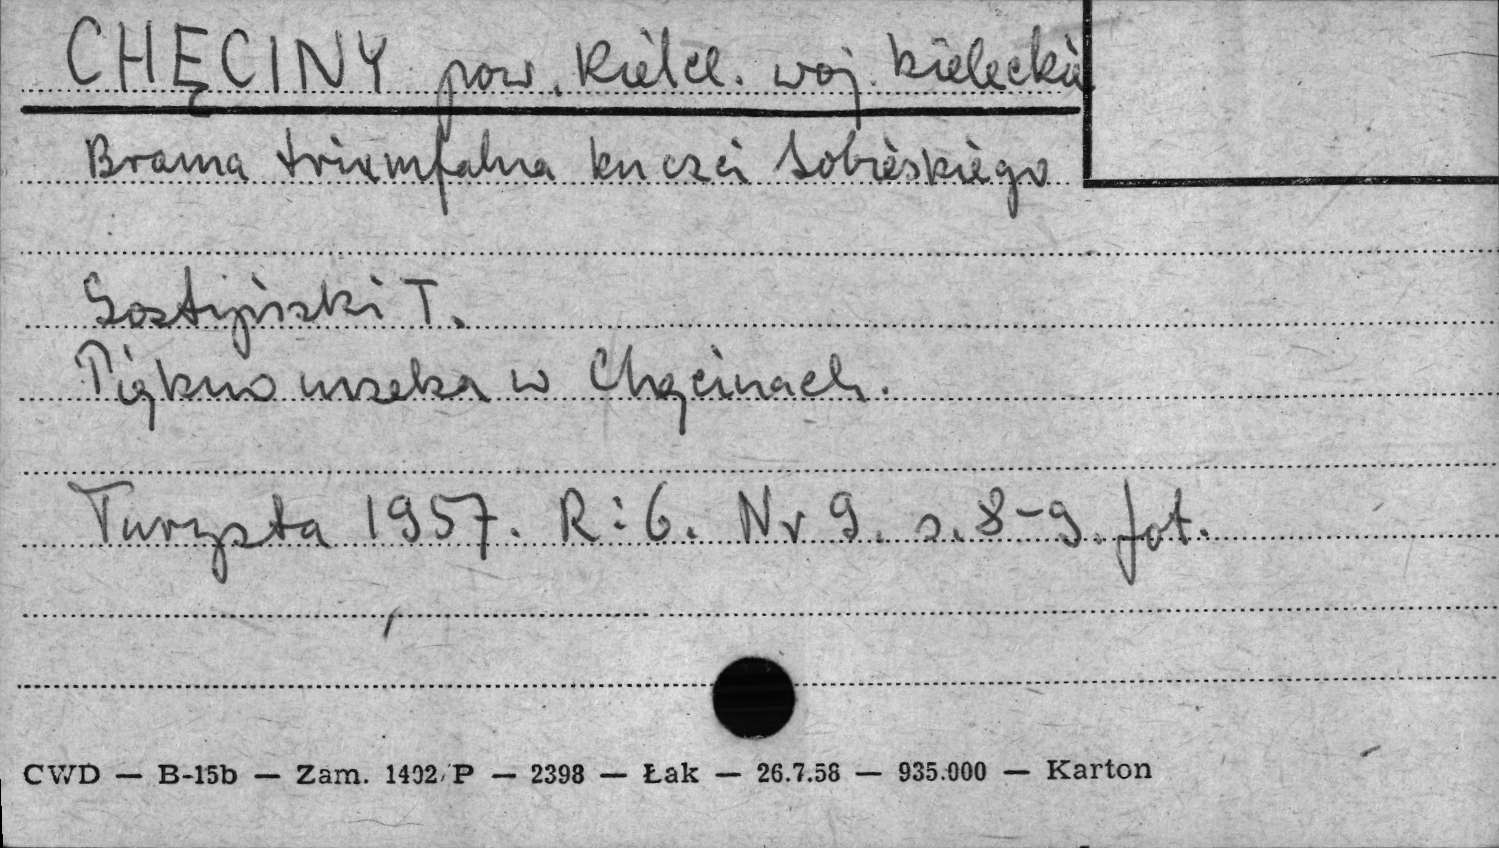 CHĘCINY pow. Kielce. woj. kieleckie
Brama triumfalna ku czci Sobieskiego
Gostyński T.
Piękno urzeka w Chęcinach.
Turysta 1957. R: 6. Nr 9. s. 8-9. fot.
CWD — B-15b — Zam. 1402/P — 2398 — Łak — 26.7.58 — 935.000 — Karton